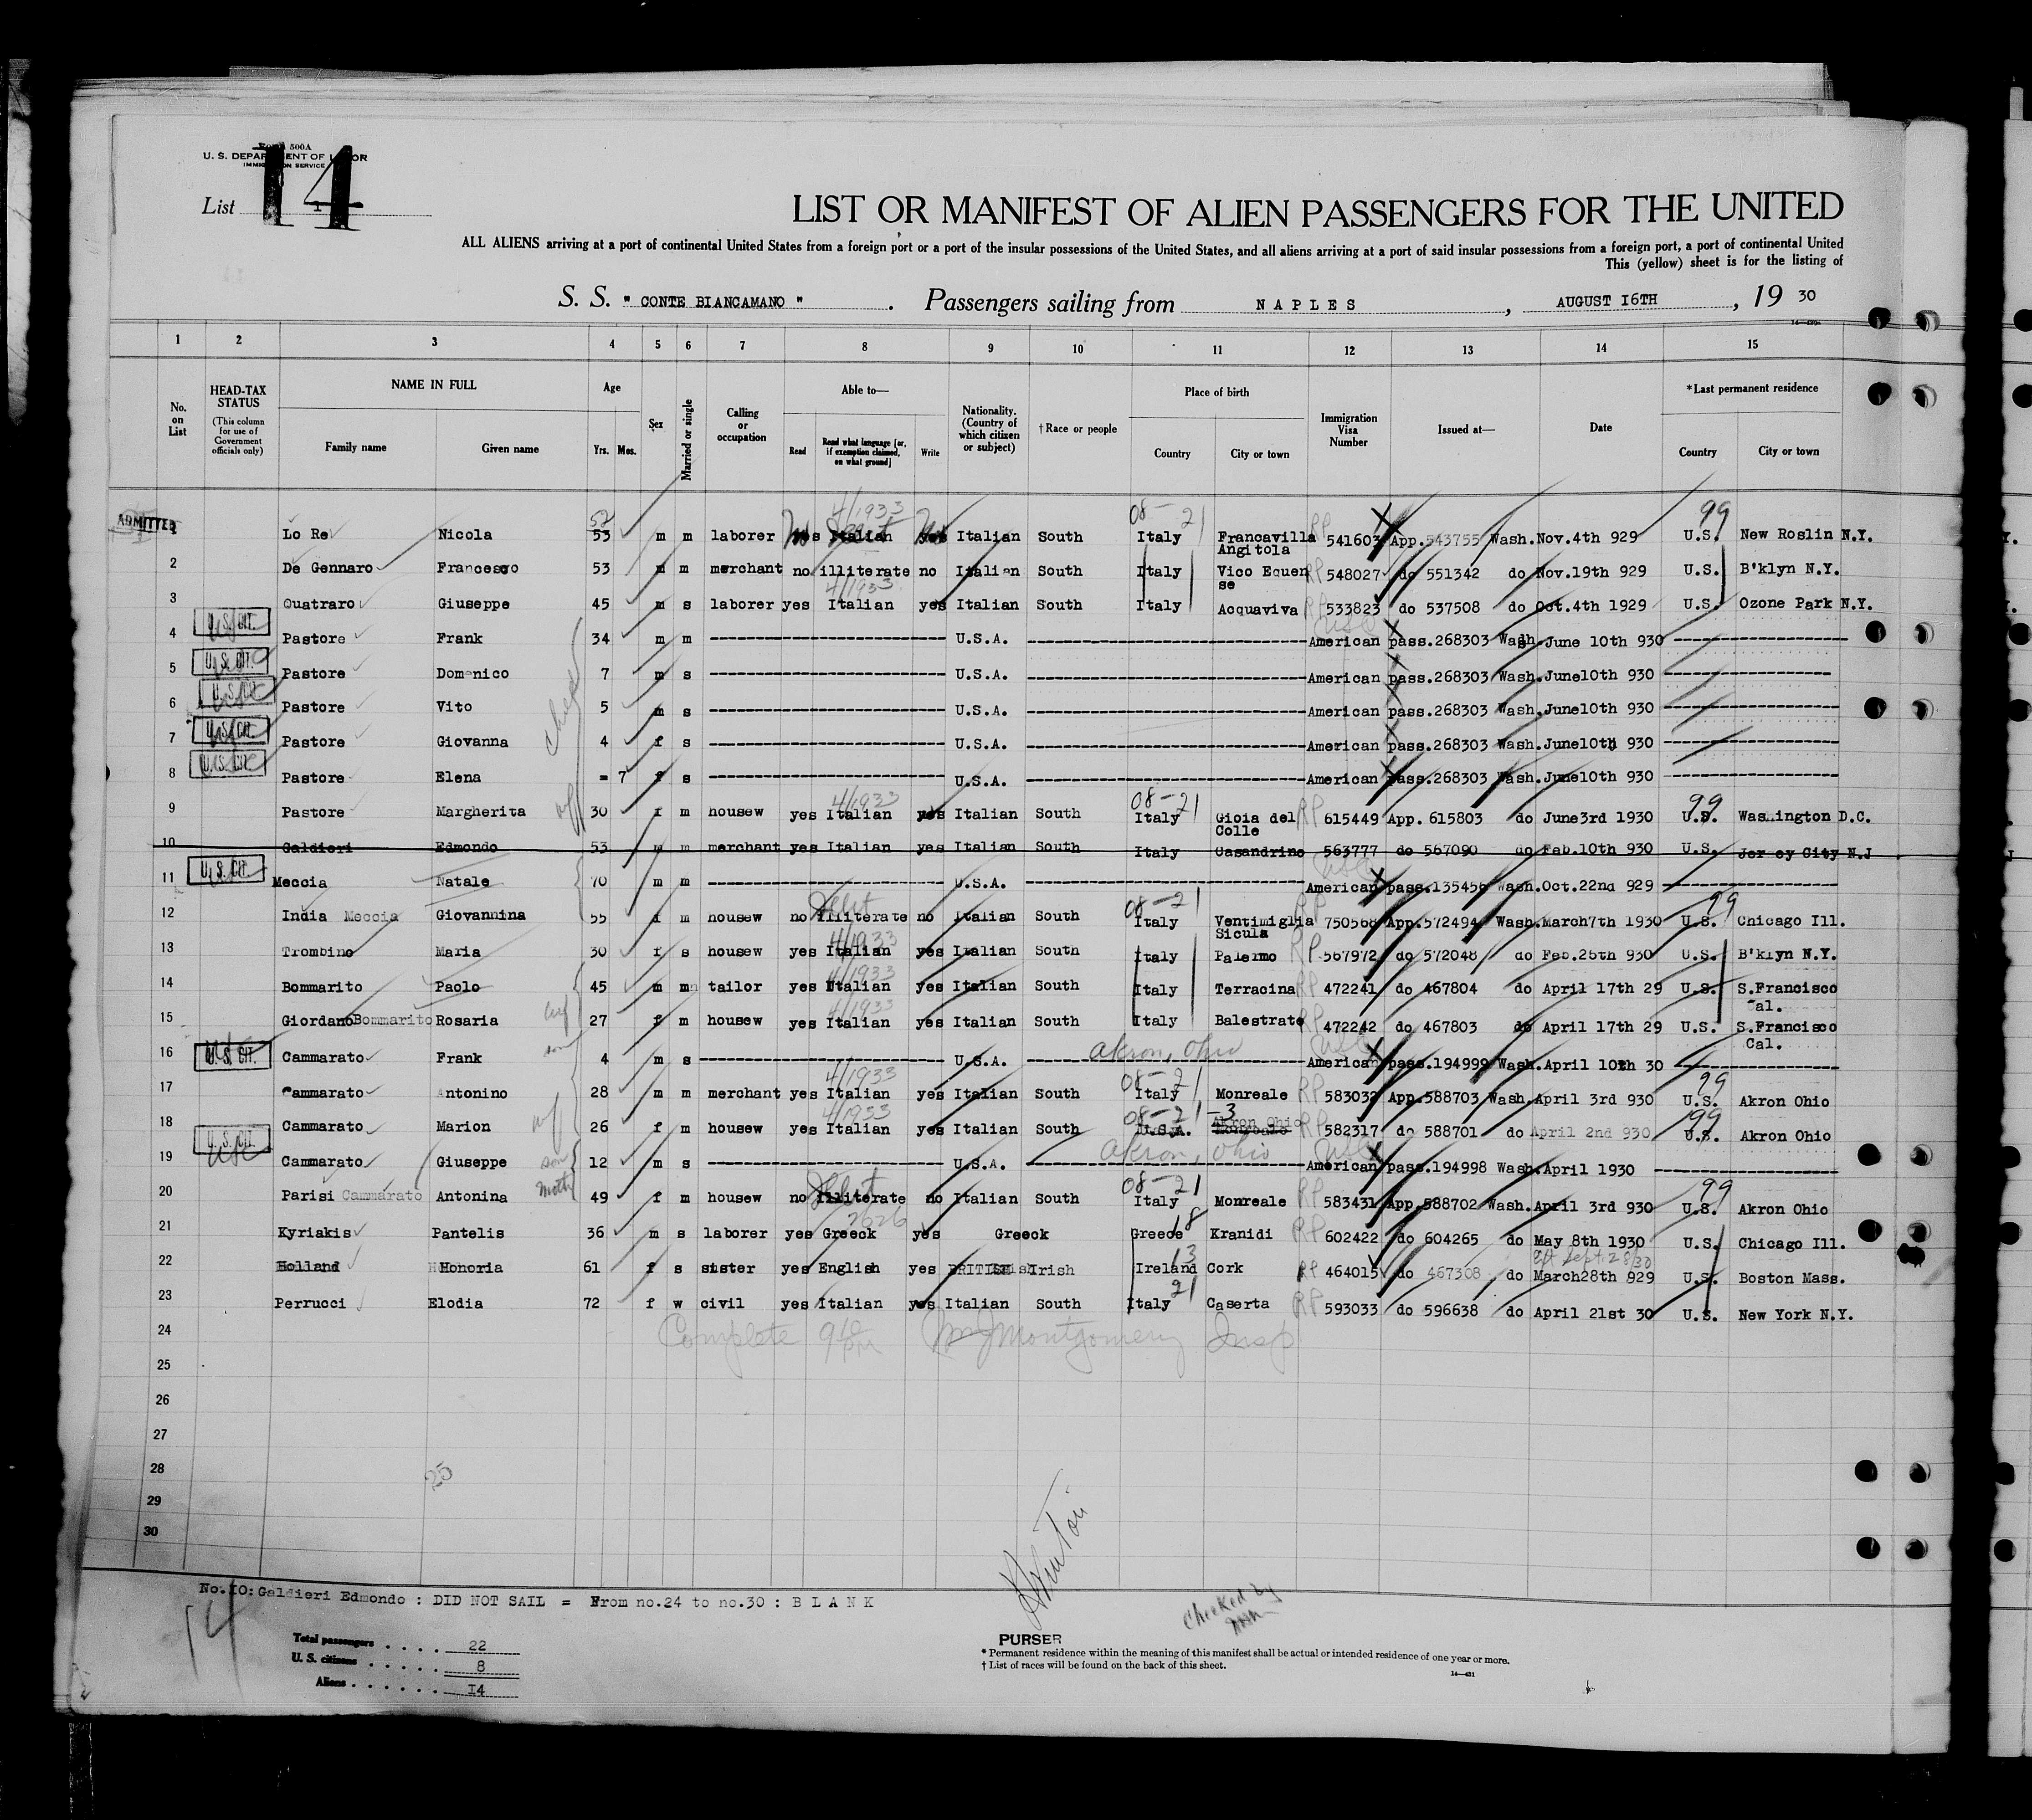 Form 500A
U. S. DEPARTMENT OF LABOR
IMMIGRATION SERVICE
List 14
LIST OR MANIFEST OF ALIEN PASSENGERS FOR THE UNITED
ALL ALIENS arriving at a port of continental United States from a foreign port or a port of the insular possessions of the United States, and all aliens arriving at a port of said insular possessions from a foreign port, a port of continental United
This (yellow) sheet is for the listing of
S. S. " CONTE BIANCAMANO " . Passengers sailing from N A P L E S , AUGUST I6TH , 19 30
1 2 3 4 5 6 7 8 9 10 11 12 13 14 15
No. on List
HEAD-TAX STATUS (This column for use of Government officials only)
NAME IN FULL Family name Given name
Age Yrs. Mos.
Sex
Married or single
Calling or occupation
Able to— Read Read what language [or, if exemption claimed, on what ground] Write
Nationality. (Country of which citizen or subject)
†Race or people
Place of birth Country City or town
Immigration Visa Number
Issued at—
Date
*Last permanent residence Country City or town
4/1933 08-21 99
ADMITTED
1 Lo Re Nicola 53 m m laborer yes Italian yes Italian South Italy Francavilla Angitola RP 541603 App.543755 Wash.Nov.4th 929 U.S. New Roslin N.Y.
2 De Gennaro Francesco 53 m m merchant no illiterate no Italian South Italy Vico Equen se RP 548027 do 551342 do Nov.19th 929 U.S. B'klyn N.Y.
4/1933
3 Quatraro Giuseppe 45 m s laborer yes Italian yes Italian South Italy Acquaviva 533823 do 537508 do Oct.4th 1929 U.S. Ozone Park N.Y.
4 U.S. CIT. Pastore Frank 34 m m U.S.A. American pass.268303 Wash.June 10th 930
5 U.S. CIT. Pastore Domenico 7 m s U.S.A. American pass.268303 Wash.June10th 930
6 U.S. CIT. Pastore Vito 5 m s U.S.A. American pass.268303 Wash.June10th 930
7 U.S. CIT. Pastore Giovanna 4 f s U.S.A. American pass.268303 Wash.June10th 930
8 U.S. CIT. Pastore Elena = 7 f s U.S.A. American pass.268303 Wash.June10th 930
4/1933 08-21 99
9 Pastore Margherita wf 30 f m housew yes Italian yes Italian South Italy Gioia del Colle RP 615449 App. 615803 do June3rd 1930 U.S. Washington D.C.
10 Galdieri Edmondo 53 m m merchant yes Italian yes Italian South Italy Casandrino 563777 do 567090 do Feb.10th 930 U.S. Jersey City N.J
11 U.S. CIT. Meccia Natale 70 m m U.S.A. American pass.135456 Wash.Oct.22nd 929
08-21 99
12 India Meccia Giovannina 55 f m housew no illiterate no Italian South Italy Ventimiglia Sicula 750568 App.572494 Wash.March7th 1930 U.S. Chicago Ill.
4/1933
13 Trombino Maria 30 f s housew yes Italian yes Italian South Italy Palermo RP 567972 do 572048 do Feb.26th 930 U.S. B'klyn N.Y.
4/1933
14 Bommarito Paolo 45 m m tailor yes Italian yes Italian South Italy Terracina RP 472241 do 467804 do April 17th 29 U.S. S.Francisco Cal.
4/1933
15 Giordano Bommarito Rosaria 27 f m housew yes Italian yes Italian South Italy Balestrate 472242 do 467803 do April 17th 29 U.S. S.Francisco Cal.
16 U.S. CIT. Cammarato Frank son 4 m s U.S.A. Akron, Ohio American pass.194999 Wash.April 10th 30
4/1933 08-21 99
17 Cammarato Antonino 28 m m merchant yes Italian yes Italian South Italy Monreale RP 583032 App.588703 Wash.April 3rd 930 U.S. Akron Ohio
4/1933 08-21-3 99
18 Cammarato Marion wf 26 f m housew yes Italian yes Italian South U.S.A. Akron Ohio Monreale RP 582317 do 588701 do April 2nd 930 U.S. Akron Ohio
19 U.S. CIT. Cammarato Giuseppe son 12 m s U.S.A. Akron, Ohio American pass.194998 Wash.April 1930
08-21 99
20 Parisi Cammarato Antonina moth 49 f m housew no illiterate no Italian South Italy Monreale RP 583431 App.588702 Wash.April 3rd 930 U.S. Akron Ohio
2626 18
21 Kyriakis Pantelis 36 m s laborer yes Greeck yes Greeck Greece Kranidi RP 602422 do 604265 do May 8th 1930 U.S. Chicago Ill.
13
22 Holland Honoria 61 f s sister yes English yes BRITISH Irish Ireland Cork RP 464015 do 467308 do March28th 929 U.S. Boston Mass.
21
23 Perrucci Elodia 72 f w civil yes Italian yes Italian South Italy Caserta RP 593033 do 596638 do April 21st 30 U.S. New York N.Y.
24 Complete Montgomery Insp
25
26
27
28
29
30
No.IO:Galdieri Edmondo : DID NOT SAIL = From no.24 to no.30 : B L A N K
14
Total passengers . . . . 22
U. S. citizens . . . . . 8
Aliens . . . . . . I4
Checked by
PURSER
* Permanent residence within the meaning of this manifest shall be actual or intended residence of one year or more.
† List of races will be found on the back of this sheet.